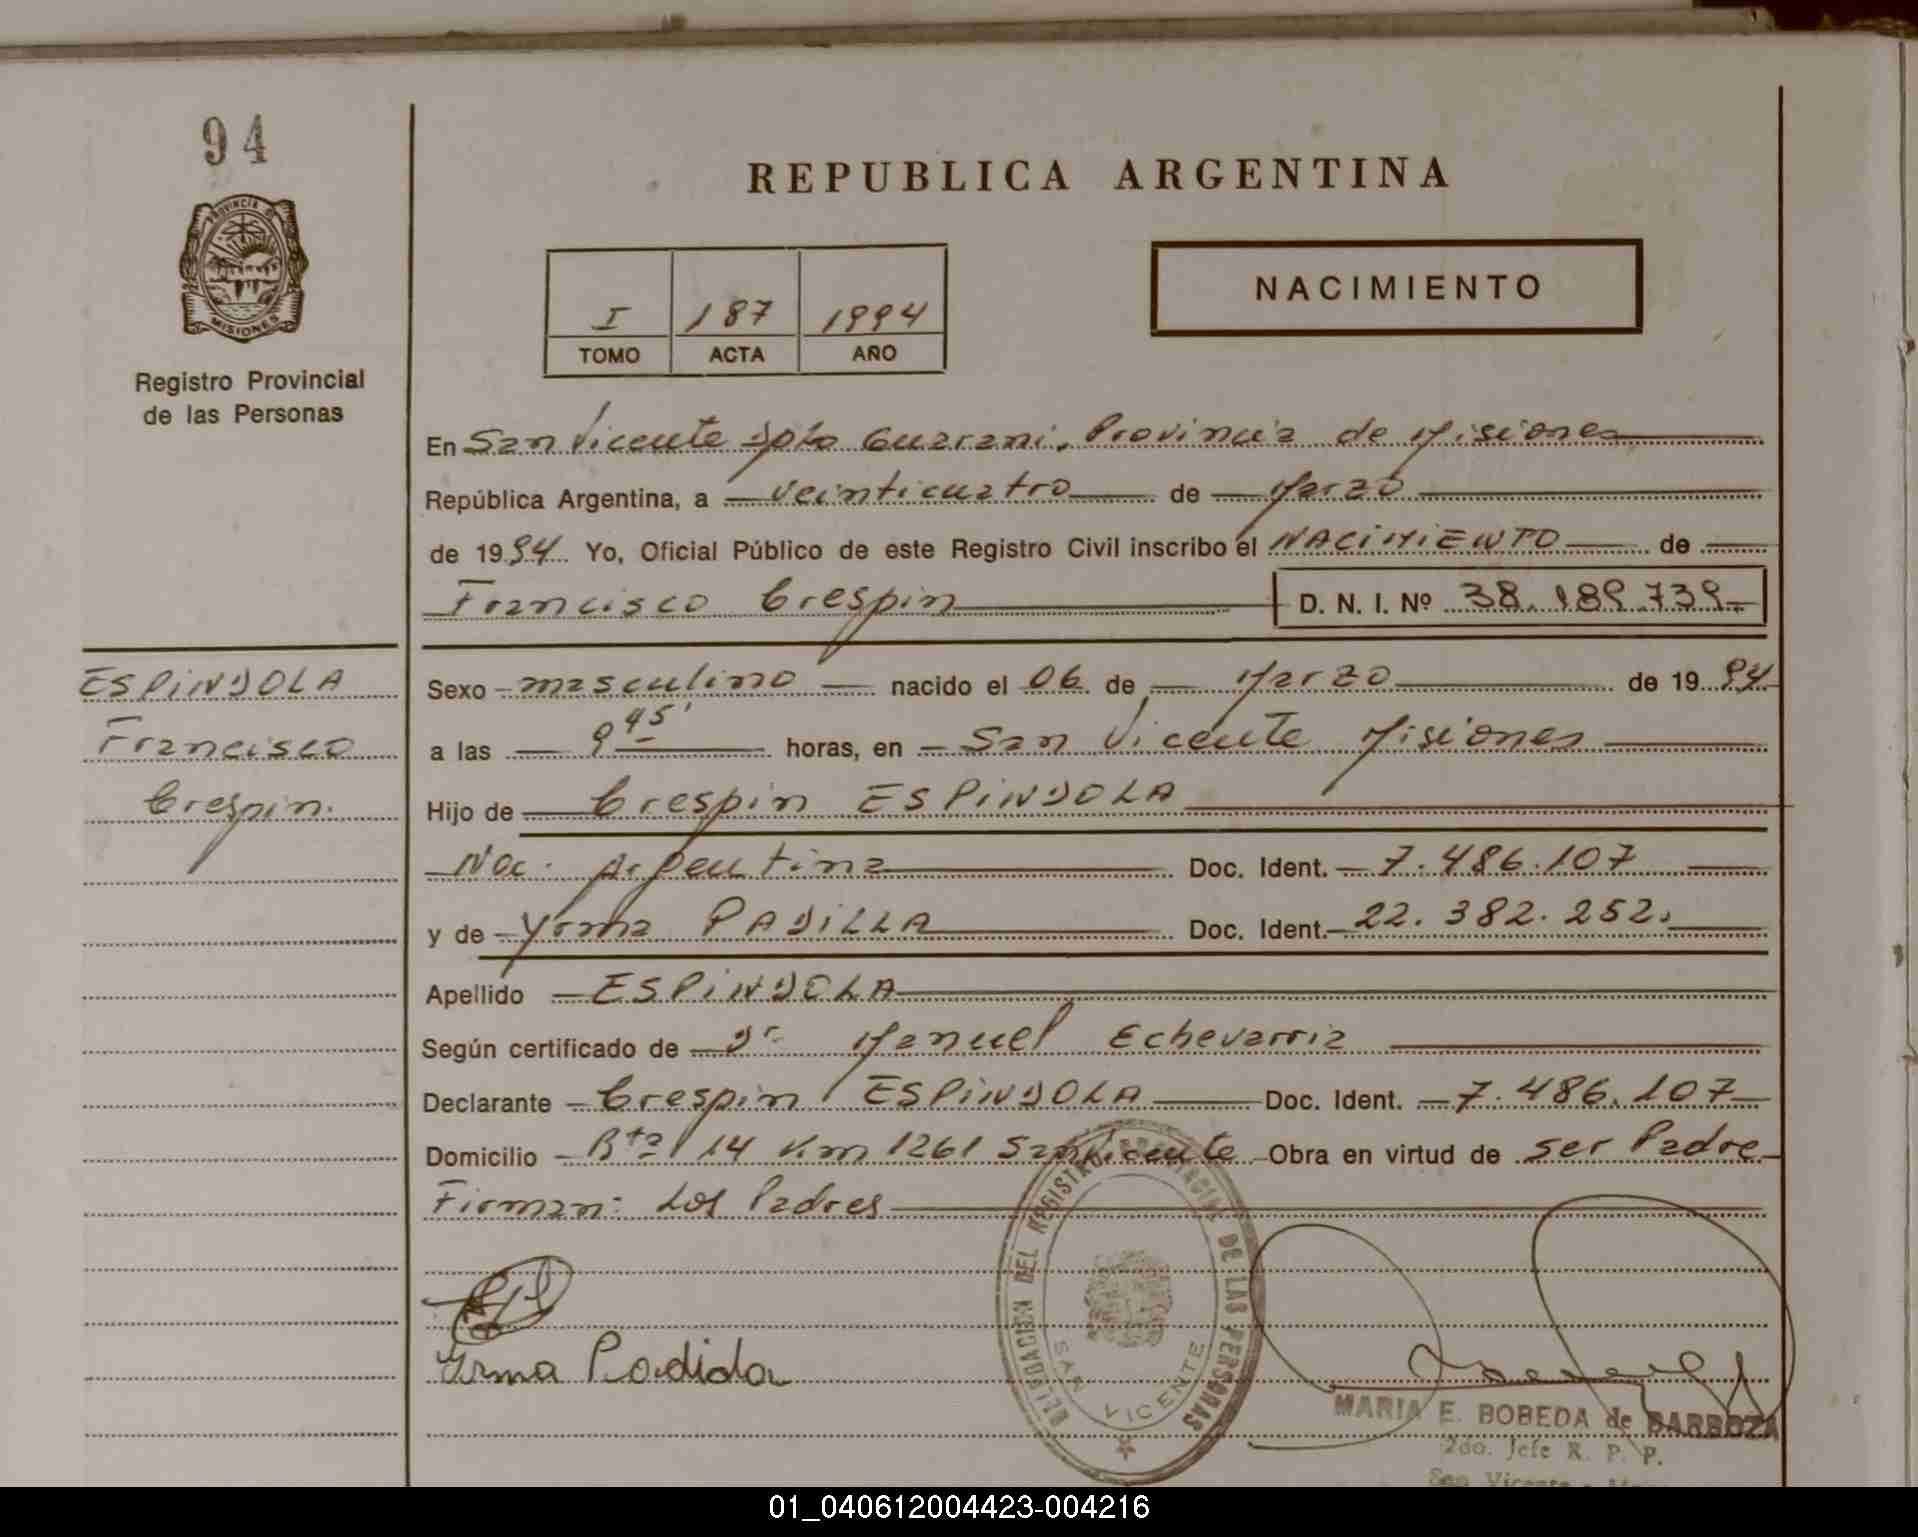 94
REPUBLICA ARGENTINA
PROVINCIA DE
MISIONES
Registro Provincial
de las Personas
I 187 1994
TOMO ACTA AÑO
NACIMIENTO
En San Vicente Dpto Guarani, Provincia de Misiones
República Argentina, a veinticuatro de Marzo
de 1994 Yo, Oficial Público de este Registro Civil inscribo el NACIMIENTO de
Francisco Crespin D. N. I. Nº 38.189.739
ESPINDOLA
Francisco
Crespin.
Sexo masculino nacido el 06 de Marzo de 1994
a las 9 45' horas, en San Vicente Misiones
Hijo de Crespin ESPINDOLA
Nac. Argentina Doc. Ident. 7.486.107
y de Yrma PADILLA Doc. Ident. 22.382.252.
Apellido ESPINDOLA
Según certificado de Dr Manuel Echevarria
Declarante Crespin ESPINDOLA Doc. Ident. 7.486.107
Domicilio Rta 14 Km 1261 San Vicente Obra en virtud de ser Padre
Firman: Los Padres
DELEGACION DEL REGISTRO PROVINCIAL DE LAS PERSONAS
SAN VICENTE
Yrma Padida
MARIA E. BOBEDA de BARBOZA
2do. Jefe R. P. P.
San Vicente
01_040612004423-004216